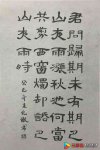 君問歸期未有期巴
山夜雨漲秋池何當
共剪西窗燭却話巴
山夜雨時
癸巳年